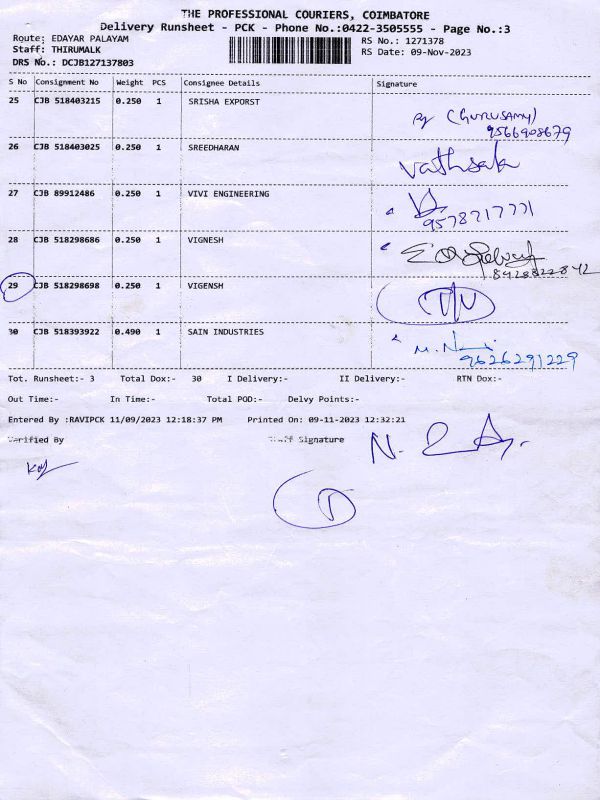 THE PROFESSIONAL COURIERS, COIMBATORE
Delivery Runsheet - PCK - Phone No.:0422-3505555 - Page No.:3
Route: EDAYAR PALAYAM RS No.: 1271378
Staff: THIRUMALK RS Date: 09-Nov-2023
DRS No.: DCJB127137803
S No Consignment No Weight PCS Consignee Details Signature
25 CJB 518403215 0.250 1 SRISHA EXPORST (GURUSAMY)
9566908679
26 CJB 518403025 0.250 1 SREEDHARAN Vathsala
27 CJB 89912486 0.250 1 VIVI ENGINEERING
9578717771
28 CJB 518298686 0.250 1 VIGNESH
8428822842
29 CJB 518298698 0.250 1 VIGENSH
30 CJB 518393922 0.490 1 SAIN INDUSTRIES
9626291229
Tot. Runsheet:- 3 Total Dox:- 30 I Delivery:- II Delivery:- RTN Dox:-
Out Time:- In Time:- Total POD:- Delvy Points:-
Entered By :RAVIPCK 11/09/2023 12:18:37 PM Printed On: 09-11-2023 12:32:21
Verified By Staff Signature